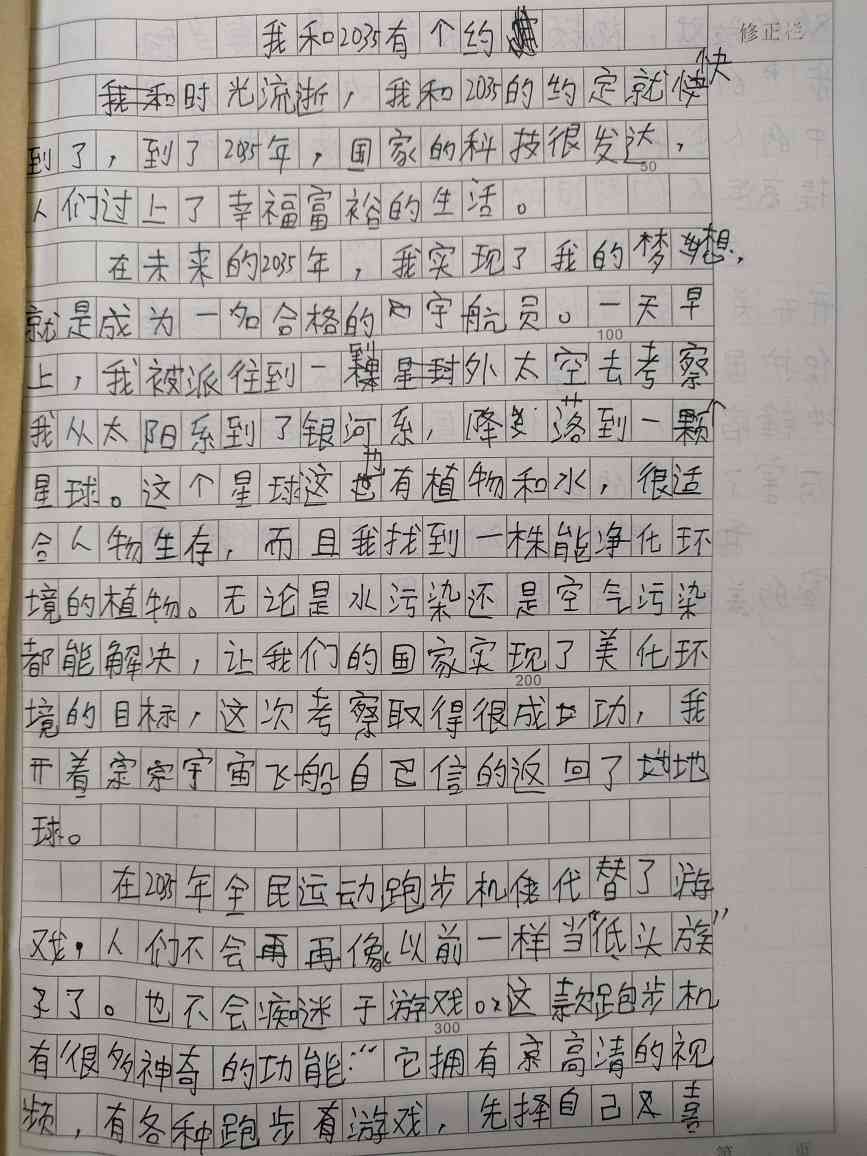 我和2035有个约
修正栏
时光流逝，我和2035的约定就快
到了，到了2035年，国家的科技很发达，
50
人们过上了幸福富裕的生活。
在未来的2035年，我实现了我的梦想，
就是成为一名合格的宇航员。一天早
100
上，我被派往到一颗外太空去考察
我从太阳系到了银河系，降落到一颗
星球。这个星球这也有植物和水，很适
合人物生存，而且我找到一株能净化环
境的植物。无论是水污染还是空气污染
都能解决，让我们的国家实现了美化环
200
境的目标，这次考察取得很成功，我
开着宇宙飞船自己信的返回了地
球。
在2035年全民运动跑步机代替了游
戏，人们不会再像以前一样当“低头族”
了。也不会痴迷于游戏。这款跑步机
300
有很多神奇的功能：“它拥有高清的视
频，有各种跑步有游戏，先择自己喜
第 页